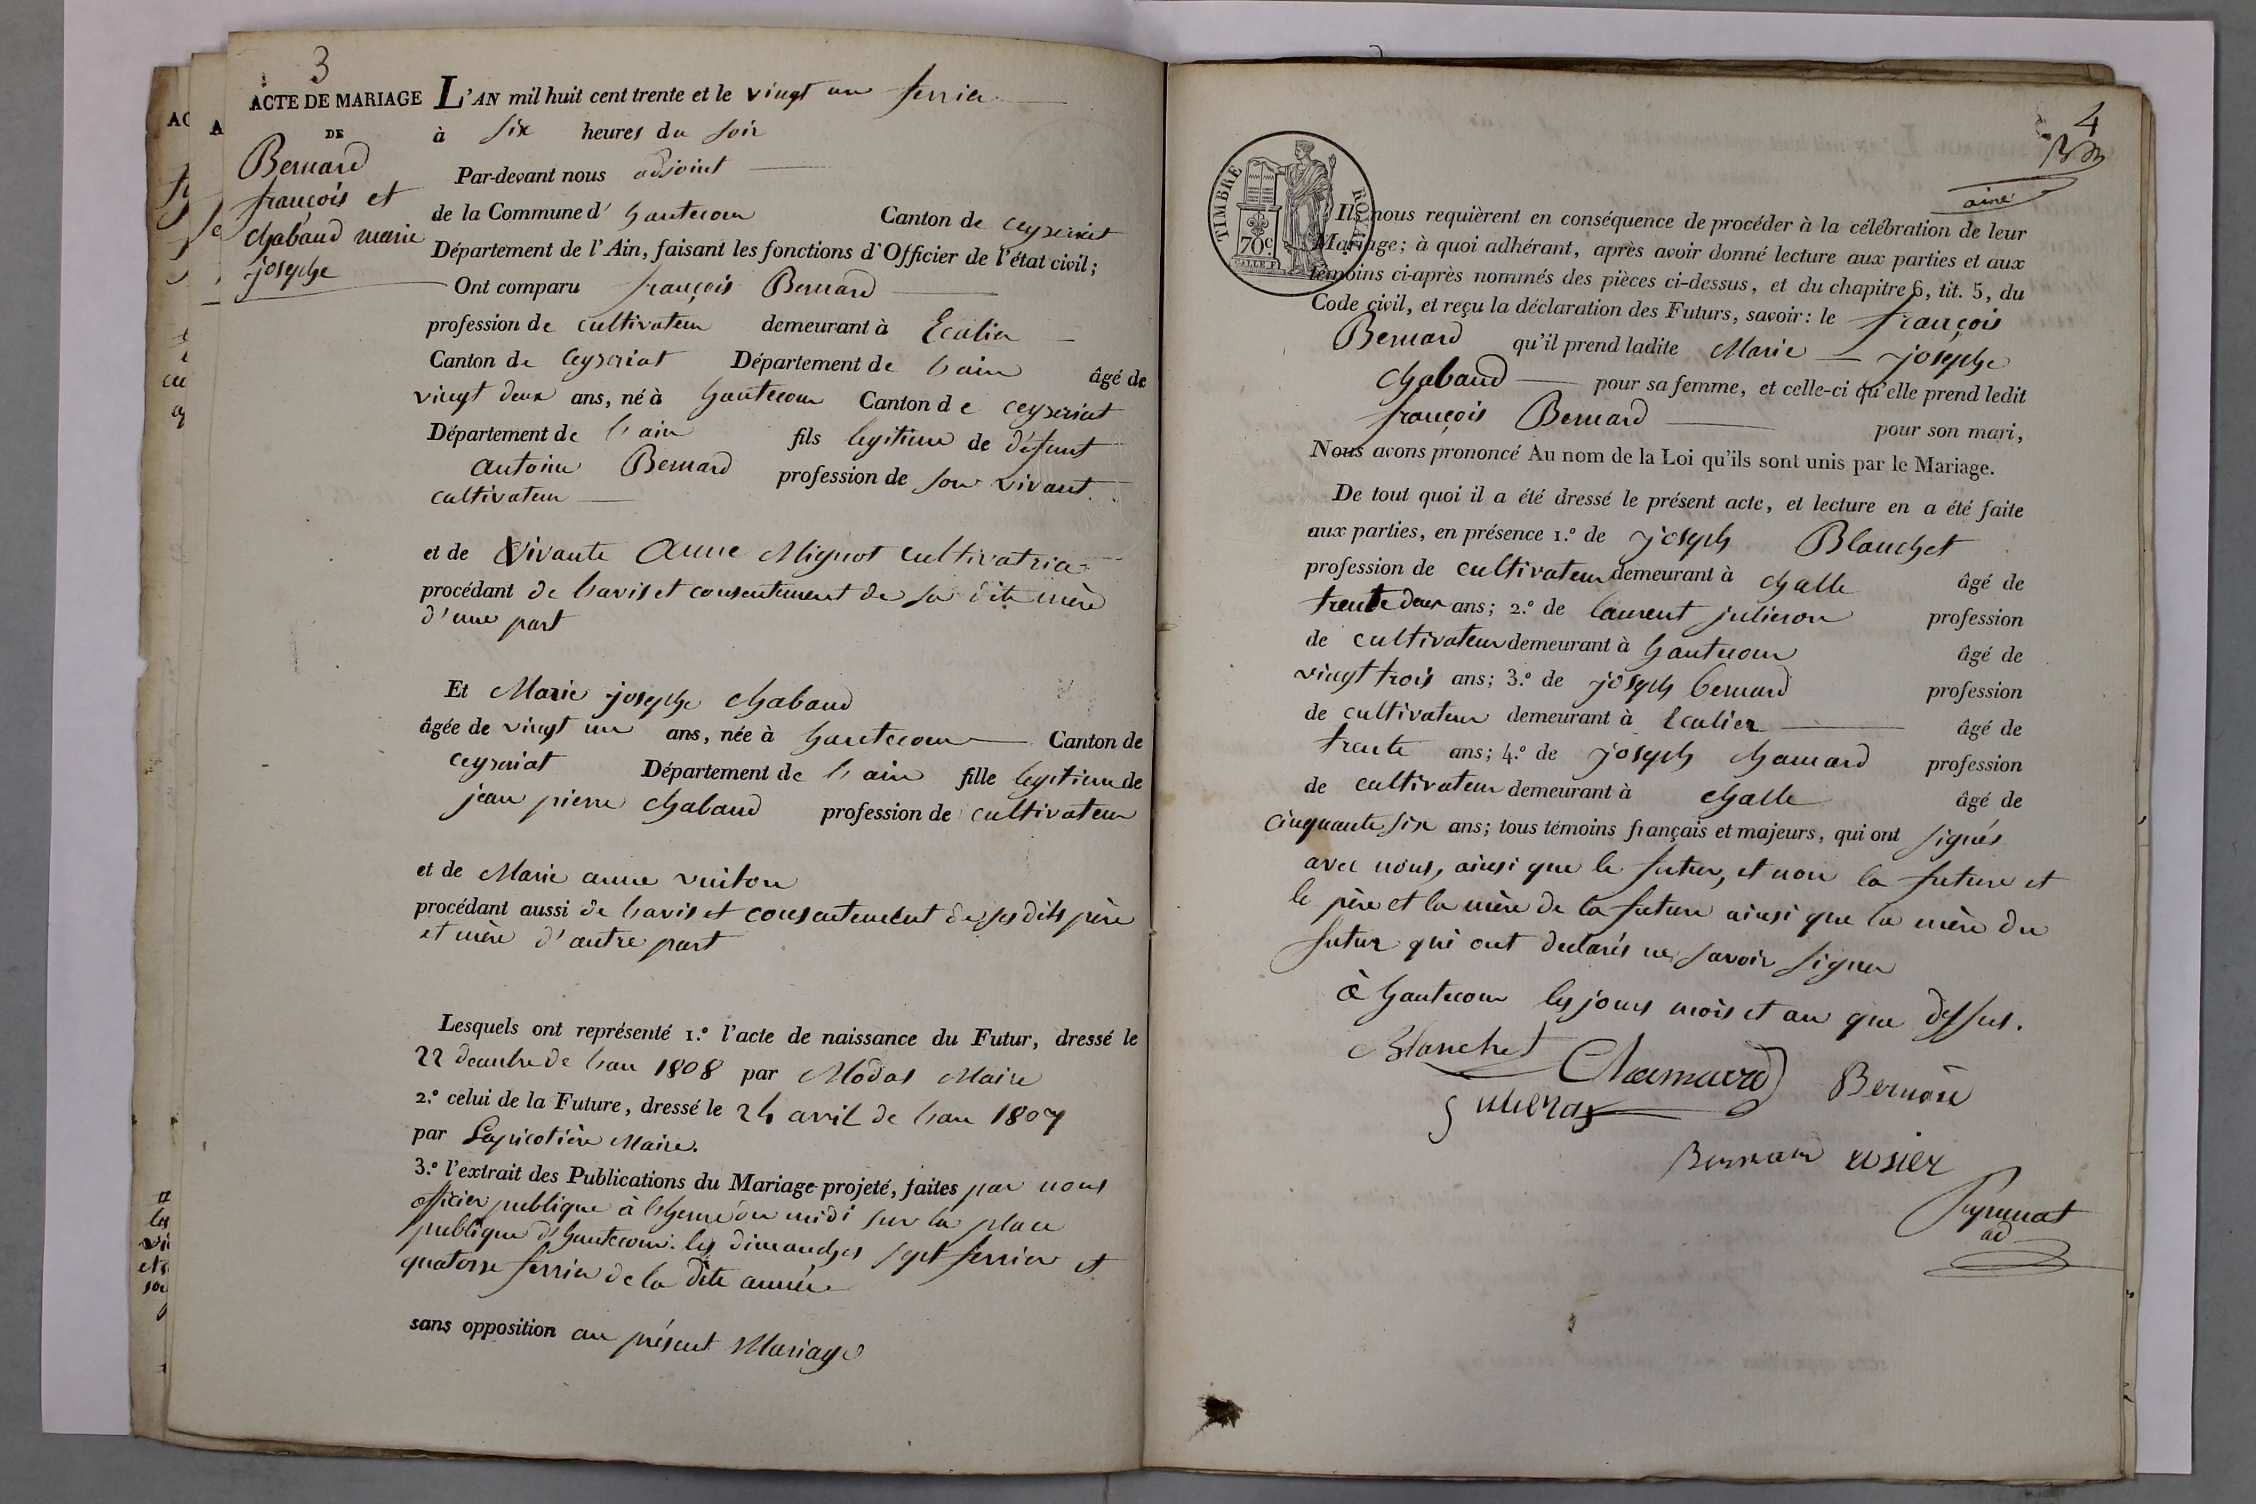 3
ACTE DE MARIAGE
DE
Bernard
françois et
chabaud marie
josephe
L'AN mil huit cent trente et le vingt un fevrier
à six heures du soir
Par-devant nous adjoint
de la Commune d' hautecour Canton de ceyzeriat
Département de l'Ain, faisant les fonctions d'Officier de l'état civil;
Ont comparu françois Bernard
profession de cultivateur demeurant à Ecalier
Canton de Ceyzeriat Département de l'ain âgé de
vingt deux ans, né à hautecour Canton de ceyzeriat
Département de l'ain fils legitime de défunt
antoine Bernard profession de son vivant
cultivateur
et de Vivante Anne Mignot cultivatrice
procédant de l'avis et consentement de sa dite mère
d'une part
Et Marie josephe chabaud
âgée de vingt un ans, née à hautecour Canton de
ceyzeriat Département de l'ain fille legitime de
jean pierre chabaud profession de cultivateur
et de Marie anne vuiton
procédant aussi de l'avis et consentement de ses dits père
et mère d'autre part
Lesquels ont représenté 1.º l'acte de naissance du Futur, dressé le
22 decembre de l'an 1808 par Modas Maire
2.º celui de la Future, dressé le 24 avril de l'an 1809
par Lapicotière Maire.
3.º l'extrait des Publications du Mariage projeté, faites par nous
officier publique à l'heure du midi sur la place
publique d'hautecour les dimanches sept fevrier et
quatorze fevrier de la dite année
sans opposition au présent Mariage
4
aine
TIMBRE ROYAL
70c
Ils nous requièrent en conséquence de procéder à la célébration de leur
Mariage; à quoi adhérant, après avoir donné lecture aux parties et aux
témoins ci-après nommés des pièces ci-dessus, et du chapitre 6, tit. 5, du
Code civil, et reçu la déclaration des Futurs, savoir: le françois
Bernard qu'il prend ladite Marie josephe
chabaud pour sa femme, et celle-ci qu'elle prend ledit
françois Bernard pour son mari,
Nous avons prononcé Au nom de la Loi qu'ils sont unis par le Mariage.
De tout quoi il a été dressé le présent acte, et lecture en a été faite
aux parties, en présence 1.º de joseph Blanchet
profession de cultivateur demeurant à challe âgé de
trente deux ans; 2.º de laurent julieron profession
de cultivateur demeurant à hautecour âgé de
vingt trois ans; 3.º de joseph bernard profession
de cultivateur demeurant à Ecalier âgé de
trente ans; 4.º de joseph chamard profession
de cultivateur demeurant à challe âgé de
cinquante six ans; tous témoins français et majeurs, qui ont signés
avec nous, ainsi que le futur, et non la future et
le père et la mère de la future ainsi que la mère du
futur qui ont declarés ne savoir signer
à hautecour les jours mois et an que dessus.
Blanchet Chamard Bernard
Bernard
ad